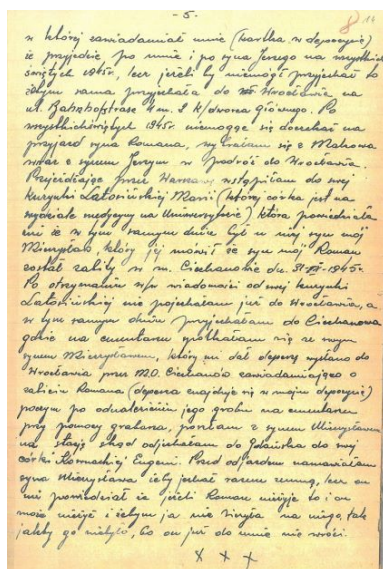 - 5 -
8 14
w której zawiadamiał mnie (kartka w depozycie)
że przyjedzie po mnie i po syna Jerzego na wszystkich
świętych 1945r, lecz jeżeli by niemógł przyjechać to
żebym sama przyjechała do Wrocławia na
ul. Bahnhofstrase 4 m. 2 k/dworca głównego. Po
wszystkichświętych 1945r. niemogąc się doczekać na
przyjazd syna Romana, wyjechałam z Makowa
wraz z synem Jerzym w podróż do Wrocławia.
Przejeżdżając przez Warszawę wstąpiłam do swej
kuzynki Latosińskiej Marii (której córka jest na
wydziale medycyny na Uniwersytecie) która powiedziała
mi że w tym samym dniu był u niej syn mój
Mieczysław, który jej mówił że syn mój Roman
został zabity w m. Ciechanowie dn. 1945r.
Po otrzymaniu w/w wiadomości od swej kuzynki
Latosińskiej nie pojechałam już do Wrocławia, a
w tym samym dniu przyjechałam do Ciechanowa
gdzie na cmentarzu spotkałam się ze swym
synem Mieczysławem, który mi dał depeszę wysłaną do
Wrocławia przez M.O. Ciechanów zawiadamiającą o
zabiciu Romana (depesza znajduje się w moim depozycie)
poczym po odnalezieniu jego grobu na cmentarzu
przy pomocy grabarza, poszłam z synem Mieczysławem
na stację, skąd odjechałam do Gdańska do swej
córki Eugenii. Przed odjazdem namawiałam
syna Mieczysława żeby jechał razem zemną, lecz on
mi powiedział że jeżeli Roman nieżyje to i on
może nieżyć i żebym ja nie liczyła na niego, tak
jakby go niebyło, bo on już do mnie nie wróci.
x x x